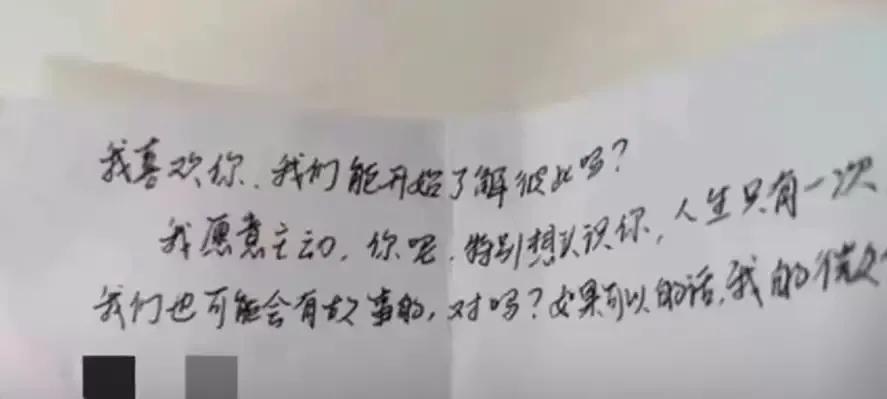 我喜欢你、我们能开始了解彼此吗？
我愿意主动，你呢，特别想认识你，人生只有一次
我们也可能会有故事的，对吗？如果可以的话，我的微